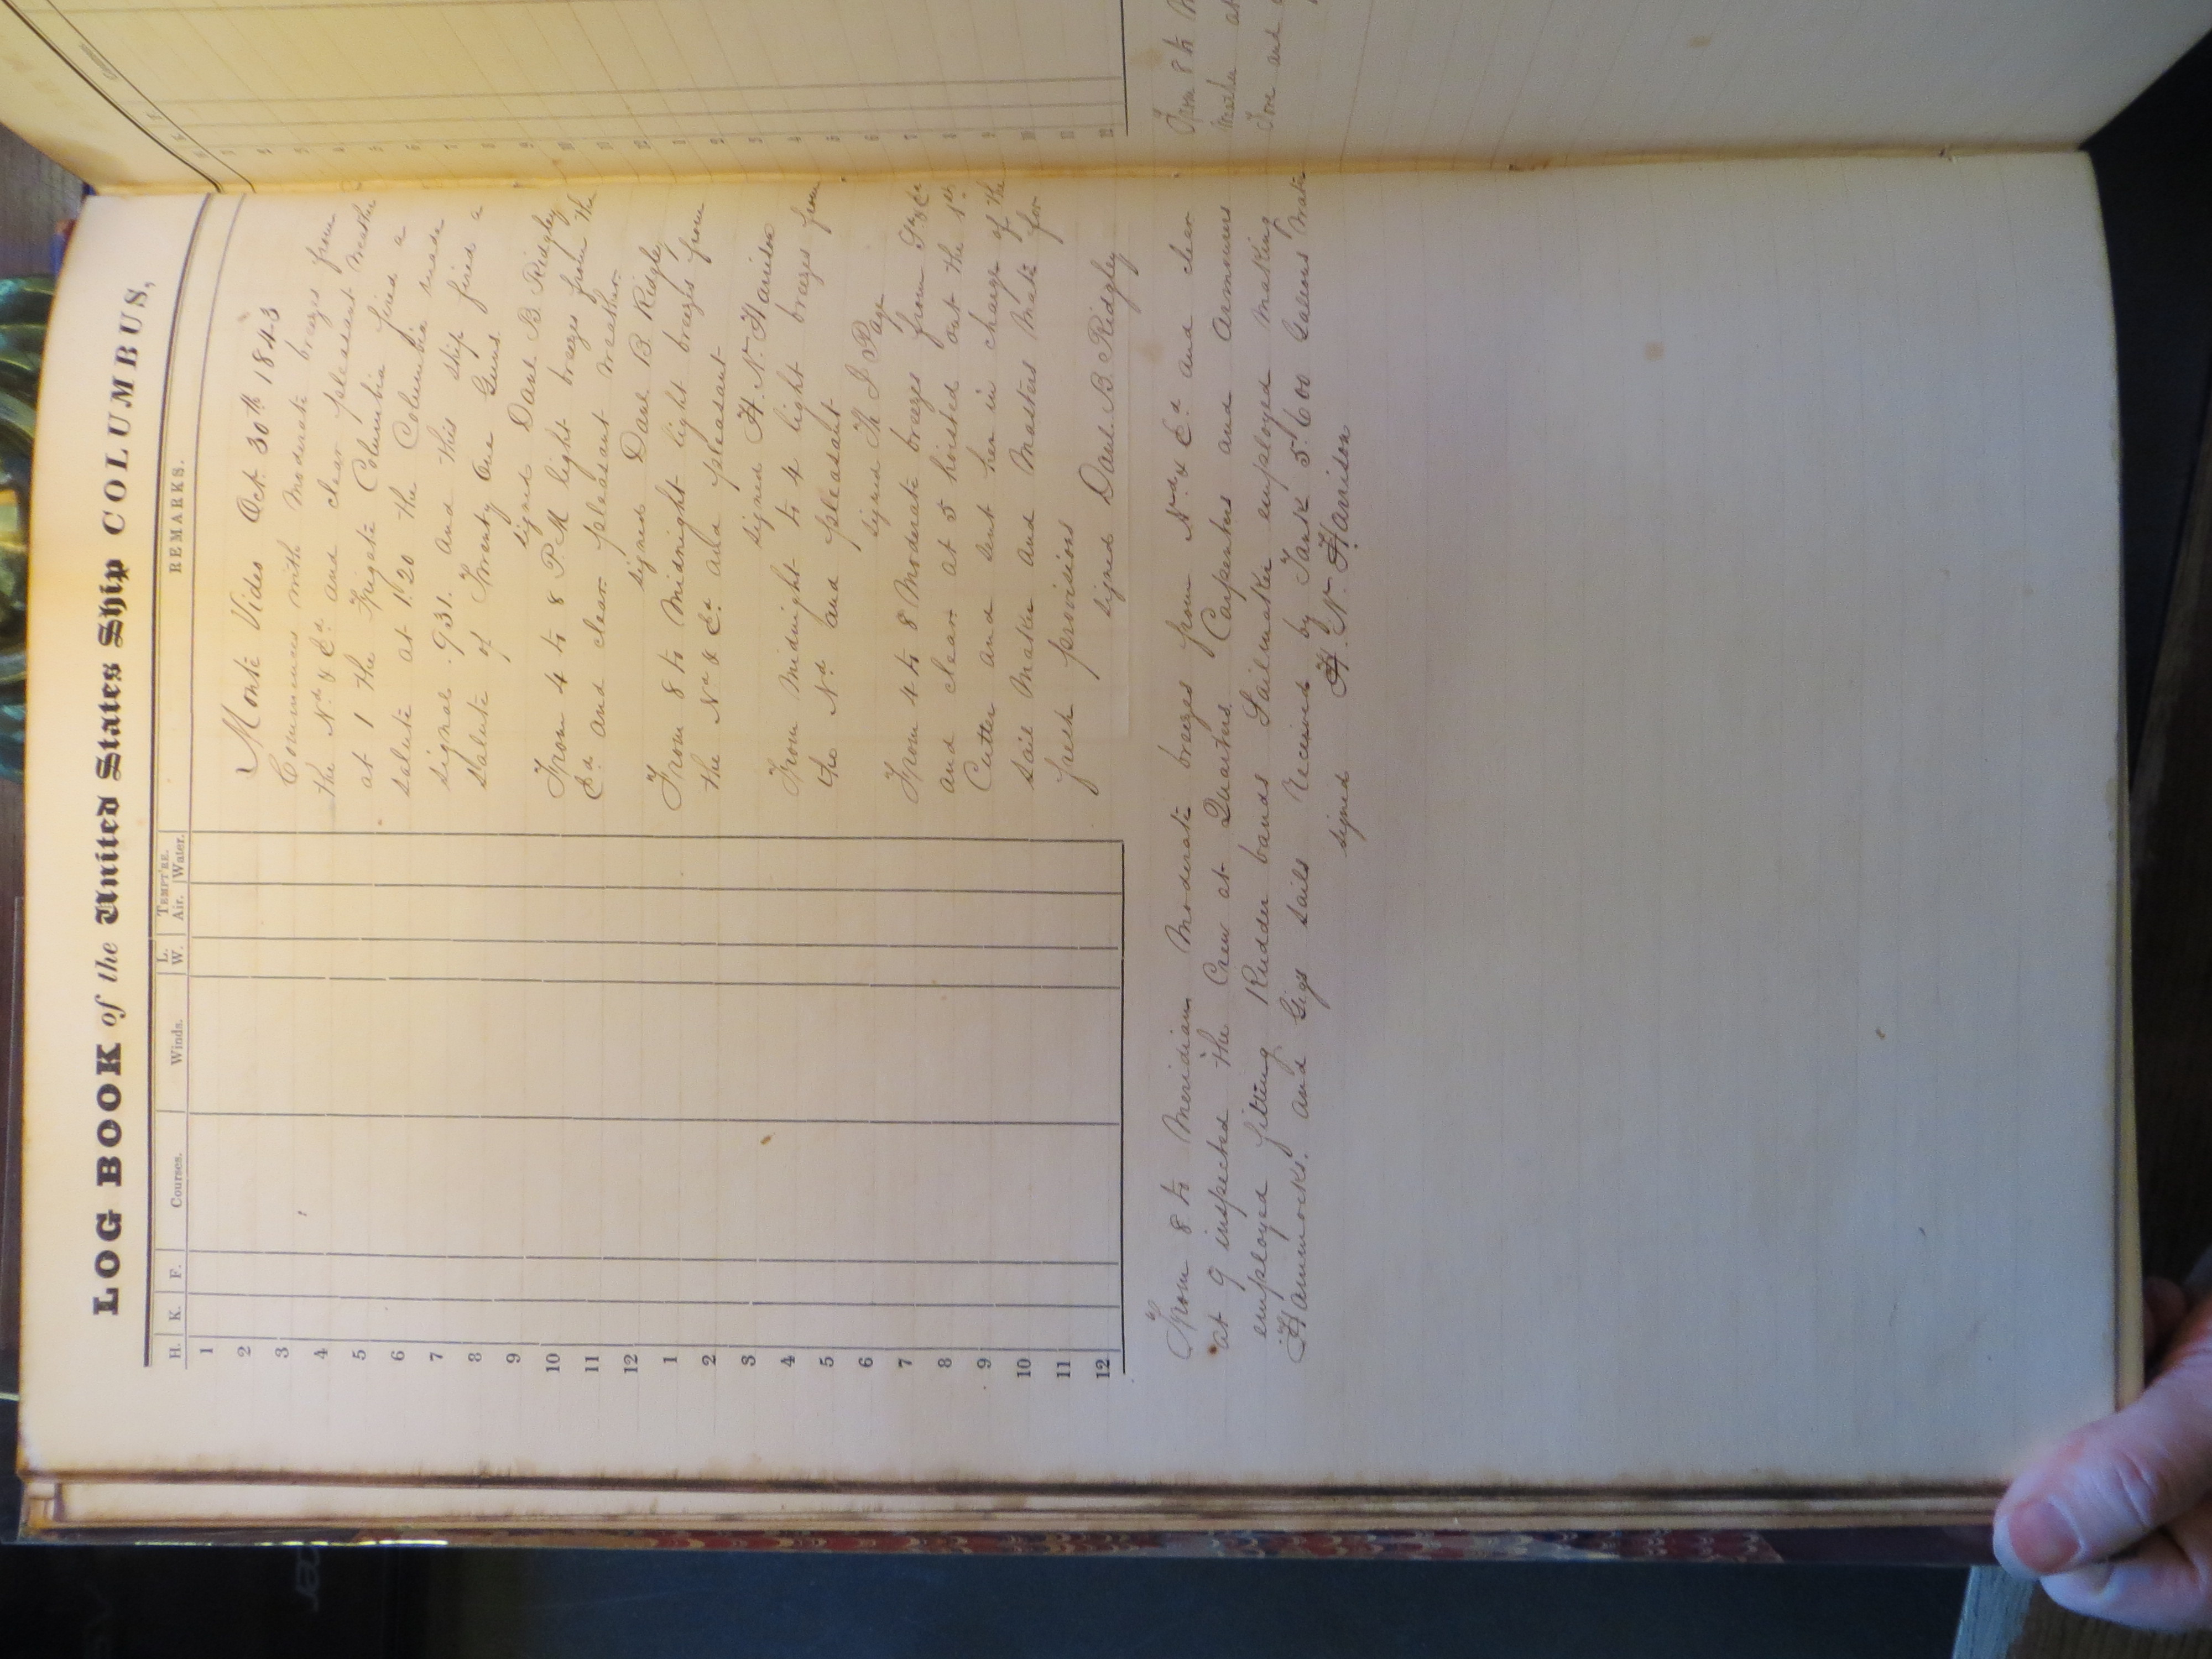 LOG BOOK of the United States Ship COLUMBUS,
H. K. F. Courses. Winds. L. W. TEMPT'RE. Air. Water. REMARKS.
1
2
3
4
5
6
7
8
9
10
11
12
1
2
3
4
5
6
7
8
9
10
11
12
Monte Video Oct. 30th 1843
Commences with moderate breezes from
the Nd. & Ed. and clear pleasant weather
at 1 the Frigate Columbia fired a
salute at 1.20 the Columbia made
signal 931. and this ship fired a
salute of Twenty One Guns.
signed Danl. B Ridgley
From 4 to 8 P.M light breezes from the
Ed. and clear pleasant weather.
signed Danl B. Ridgley
From 8 to Midnight light breezes from
the Nd & Ed. and pleasant
signed H. N. Harrison
From midnight to 4 light breezes from
the Nd and pleasant
signed Th J Page
From 4 to 8 Moderate breezes from &
and clear at 5 hoisted out the 1st.
Cutter and sent her in charge of the
Sail Maker and Masters Mate for
fresh provisions
signed Danl. B. Ridgley
From 8 to Meridian Moderate breezes from Nd. & Ed. and clear
at 9 inspected the Crew at Quarters. Carpenters and Armourers
employed fitting Rudder bands Sailmaker employed making
Hammocks. and Gigs sails Received by Tank 5.600 Gallons Water
signed H. N. Harrison
From 8 to
weather at
and